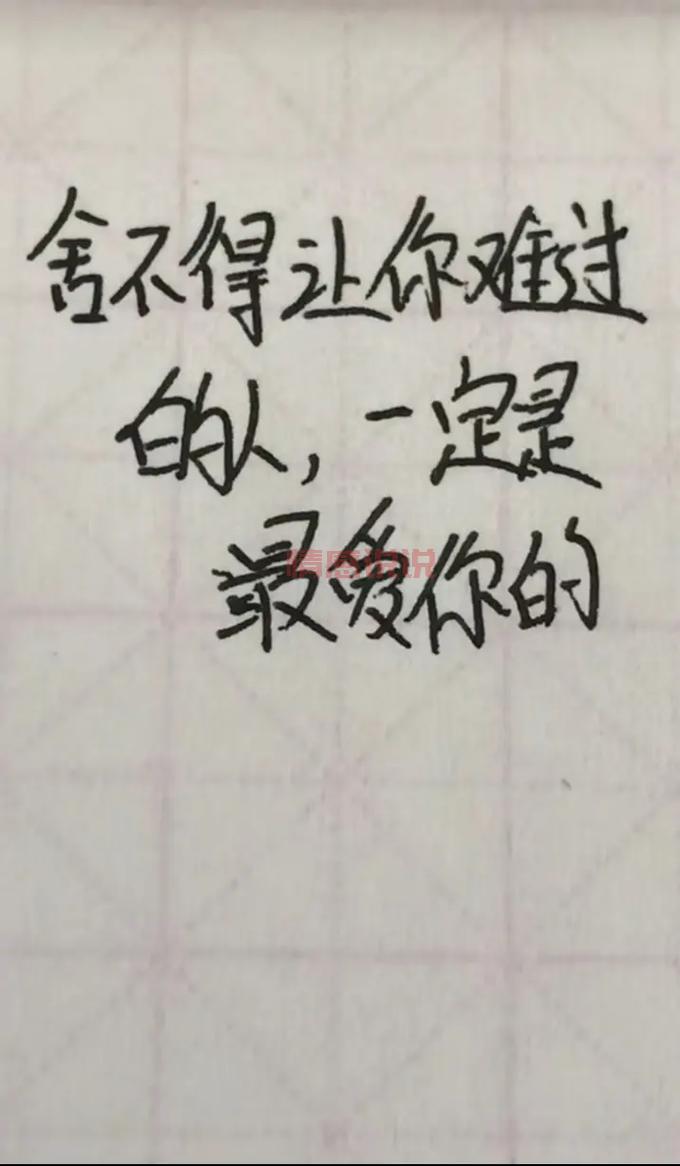 舍不得让你难过
的人，一定是
最爱你的
情感说说